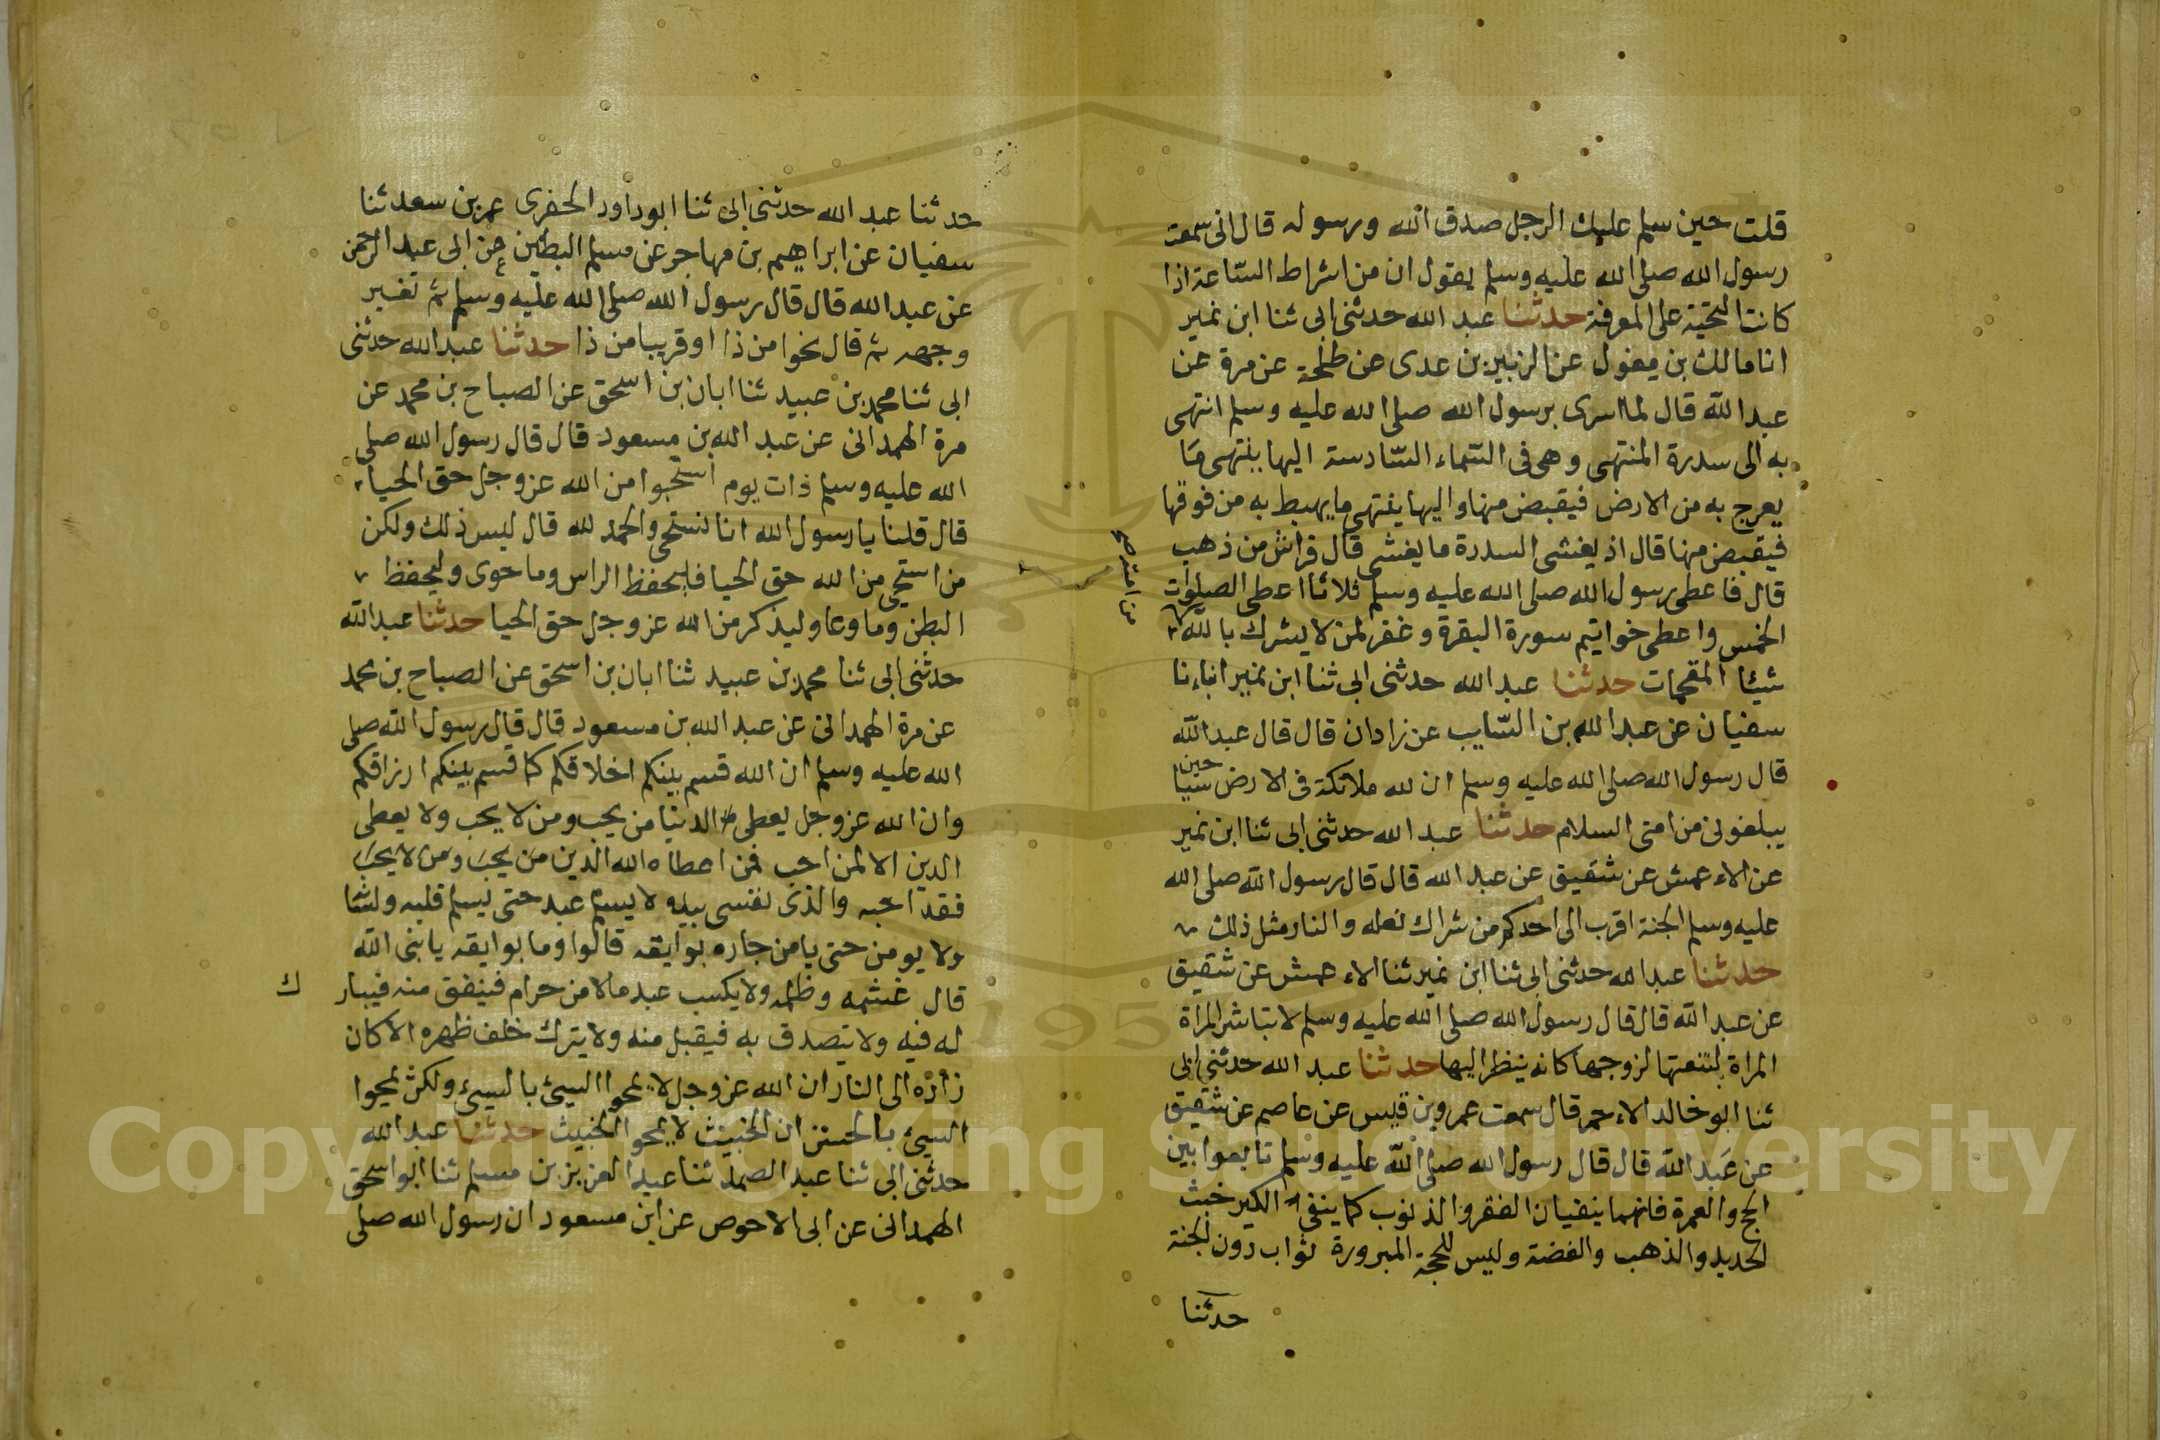 قلت حين سلم عليك الرجل صدق الله ورسوله قال انى سمعت
رسول الله صلى الله عليه وسلم يقول ان من اشراط الساعة اذا
كانت التحية على المعرفة حدثنا عبد الله حدثنى ابى ثنا ابن نمير
انا مالك بن مغول عن الزبير بن عدى عن طلحة عن مرة عن
عبد الله قال لما اسرى برسول الله صلى الله عليه وسلم انتهى
به الى سدرة المنتهى وهى فى السماء السادسة اليها ينتهى ما
يعرج به من الارض فيقبض منها واليها ينتهى ما يهبط به من فوقها
فيقبض منها قال اذ يغشى السدرة ما يغشى قال فراش من ذهب
قال فاعطى رسول الله صلى الله عليه وسلم ثلاثا اعطى الصلوات
الخمس واعطى خواتيم سورة البقرة وغفر لمن لا يشرك بالله
من امته صح
شيئا المقحمات حدثنا عبد الله حدثنى ابى ثنا ابن نمير انباءنا
سفيان عن عبد الله بن السايب عن زادان قال قال عبد الله
قال رسول الله صلى الله عليه وسلم ان لله ملائكة فى الارض سياحين
يبلغونى من امتى السلام حدثنا عبد الله حدثنى ابى ثنا ابن نمير
عن الاعمش عن شقيق عن عبد الله قال قال رسول الله صلى الله
عليه وسلم الجنة اقرب الى احدكم من شراك نعله والنار مثل ذلك
حدثنا عبد الله حدثنى ابى ثنا ابن نمير ثنا الاعمش عن شقيق
عن عبد الله قال قال رسول الله صلى الله عليه وسلم لا تباشر المراة
المراة لتنعتها لزوجها كانه ينظر اليها حدثنا عبد الله حدثنى ابى
ثنا ابو خالد الاحمر قال سمعت عمرو بن قيس عن عاصم عن شقيق
عن عبد الله قال قال رسول الله صلى الله عليه وسلم تابعوا بين
الحج والعمرة فانهما ينفيان الفقر والذنوب كما ينفى الكير خبث
الحديد والذهب والفضة وليس للحجة المبرورة ثواب دون الجنة
حدثنا
حدثنا عبد الله حدثنى ابى ثنا ابو داود الحفرى عمر بن سعد ثنا
سفيان عن ابراهيم بن مهاجر عن مسلم البطين عن ابى عبد الرحمن
عن عبد الله قال قال رسول الله صلى الله عليه وسلم ثم تغير
وجهه ثم قال نحوا من ذا او قريبا من ذا حدثنا عبد الله حدثنى
ابى ثنا محمد بن عبيد ثنا ابان بن اسحق عن الصباح بن محمد عن
مرة الهمدانى عن عبد الله بن مسعود قال قال رسول الله صلى
الله عليه وسلم ذات يوم استحيوا من الله عز وجل حق الحياء
قال قلنا يا رسول الله انا نستحى والحمد لله قال ليس ذلك ولكن
من استحى من الله حق الحيا فليحفظ الراس وما حوى وليحفظ
البطن وما وعا وليذكر من الله عز وجل حق الحيا حدثنا عبد الله
حدثنى ابى ثنا محمد بن عبيد ثنا ابان بن اسحق عن الصباح بن محمد
عن مرة الهمدانى عن عبد الله بن مسعود قال قال رسول الله صلى
الله عليه وسلم ان الله قسم بينكم اخلاقكم كما قسم بينكم ارزاقكم
وان الله عز وجل يعطى الدنيا من يحب ومن لا يحب ولا يعطى
الدين الا لمن احب فمن اعطاه الله الدين من يحب ومن لا يحب
فقد احبه والذى نفسى بيده لا يسلم عبد حتى يسلم قلبه ولسا
ولا يومن حتى يامن جاره بوايقه قالوا وما بوايقه يا نبى الله
قال غشمه وظلمه ولا يكسب عبد مالا من حرام فينفق منه فيبار ك
له فيه ولا يتصدق به فيقبل منه ولا يترك خلف ظهره الا كان
زاده الى النار ان الله عز وجل لا يمحوا السيئ بالسيئ ولكن يمحوا
السيئ بالحسن ان الخبيث لا يمحو الخبيث حدثنا عبد الله
حدثنى ابى ثنا عبد الصمد ثنا عبد العزيز بن مسلم ثنا ابو اسحق
الهمدانى عن ابى الاحوص عن ابن مسعود ان رسول الله صلى
Copyright © King Saud University
195